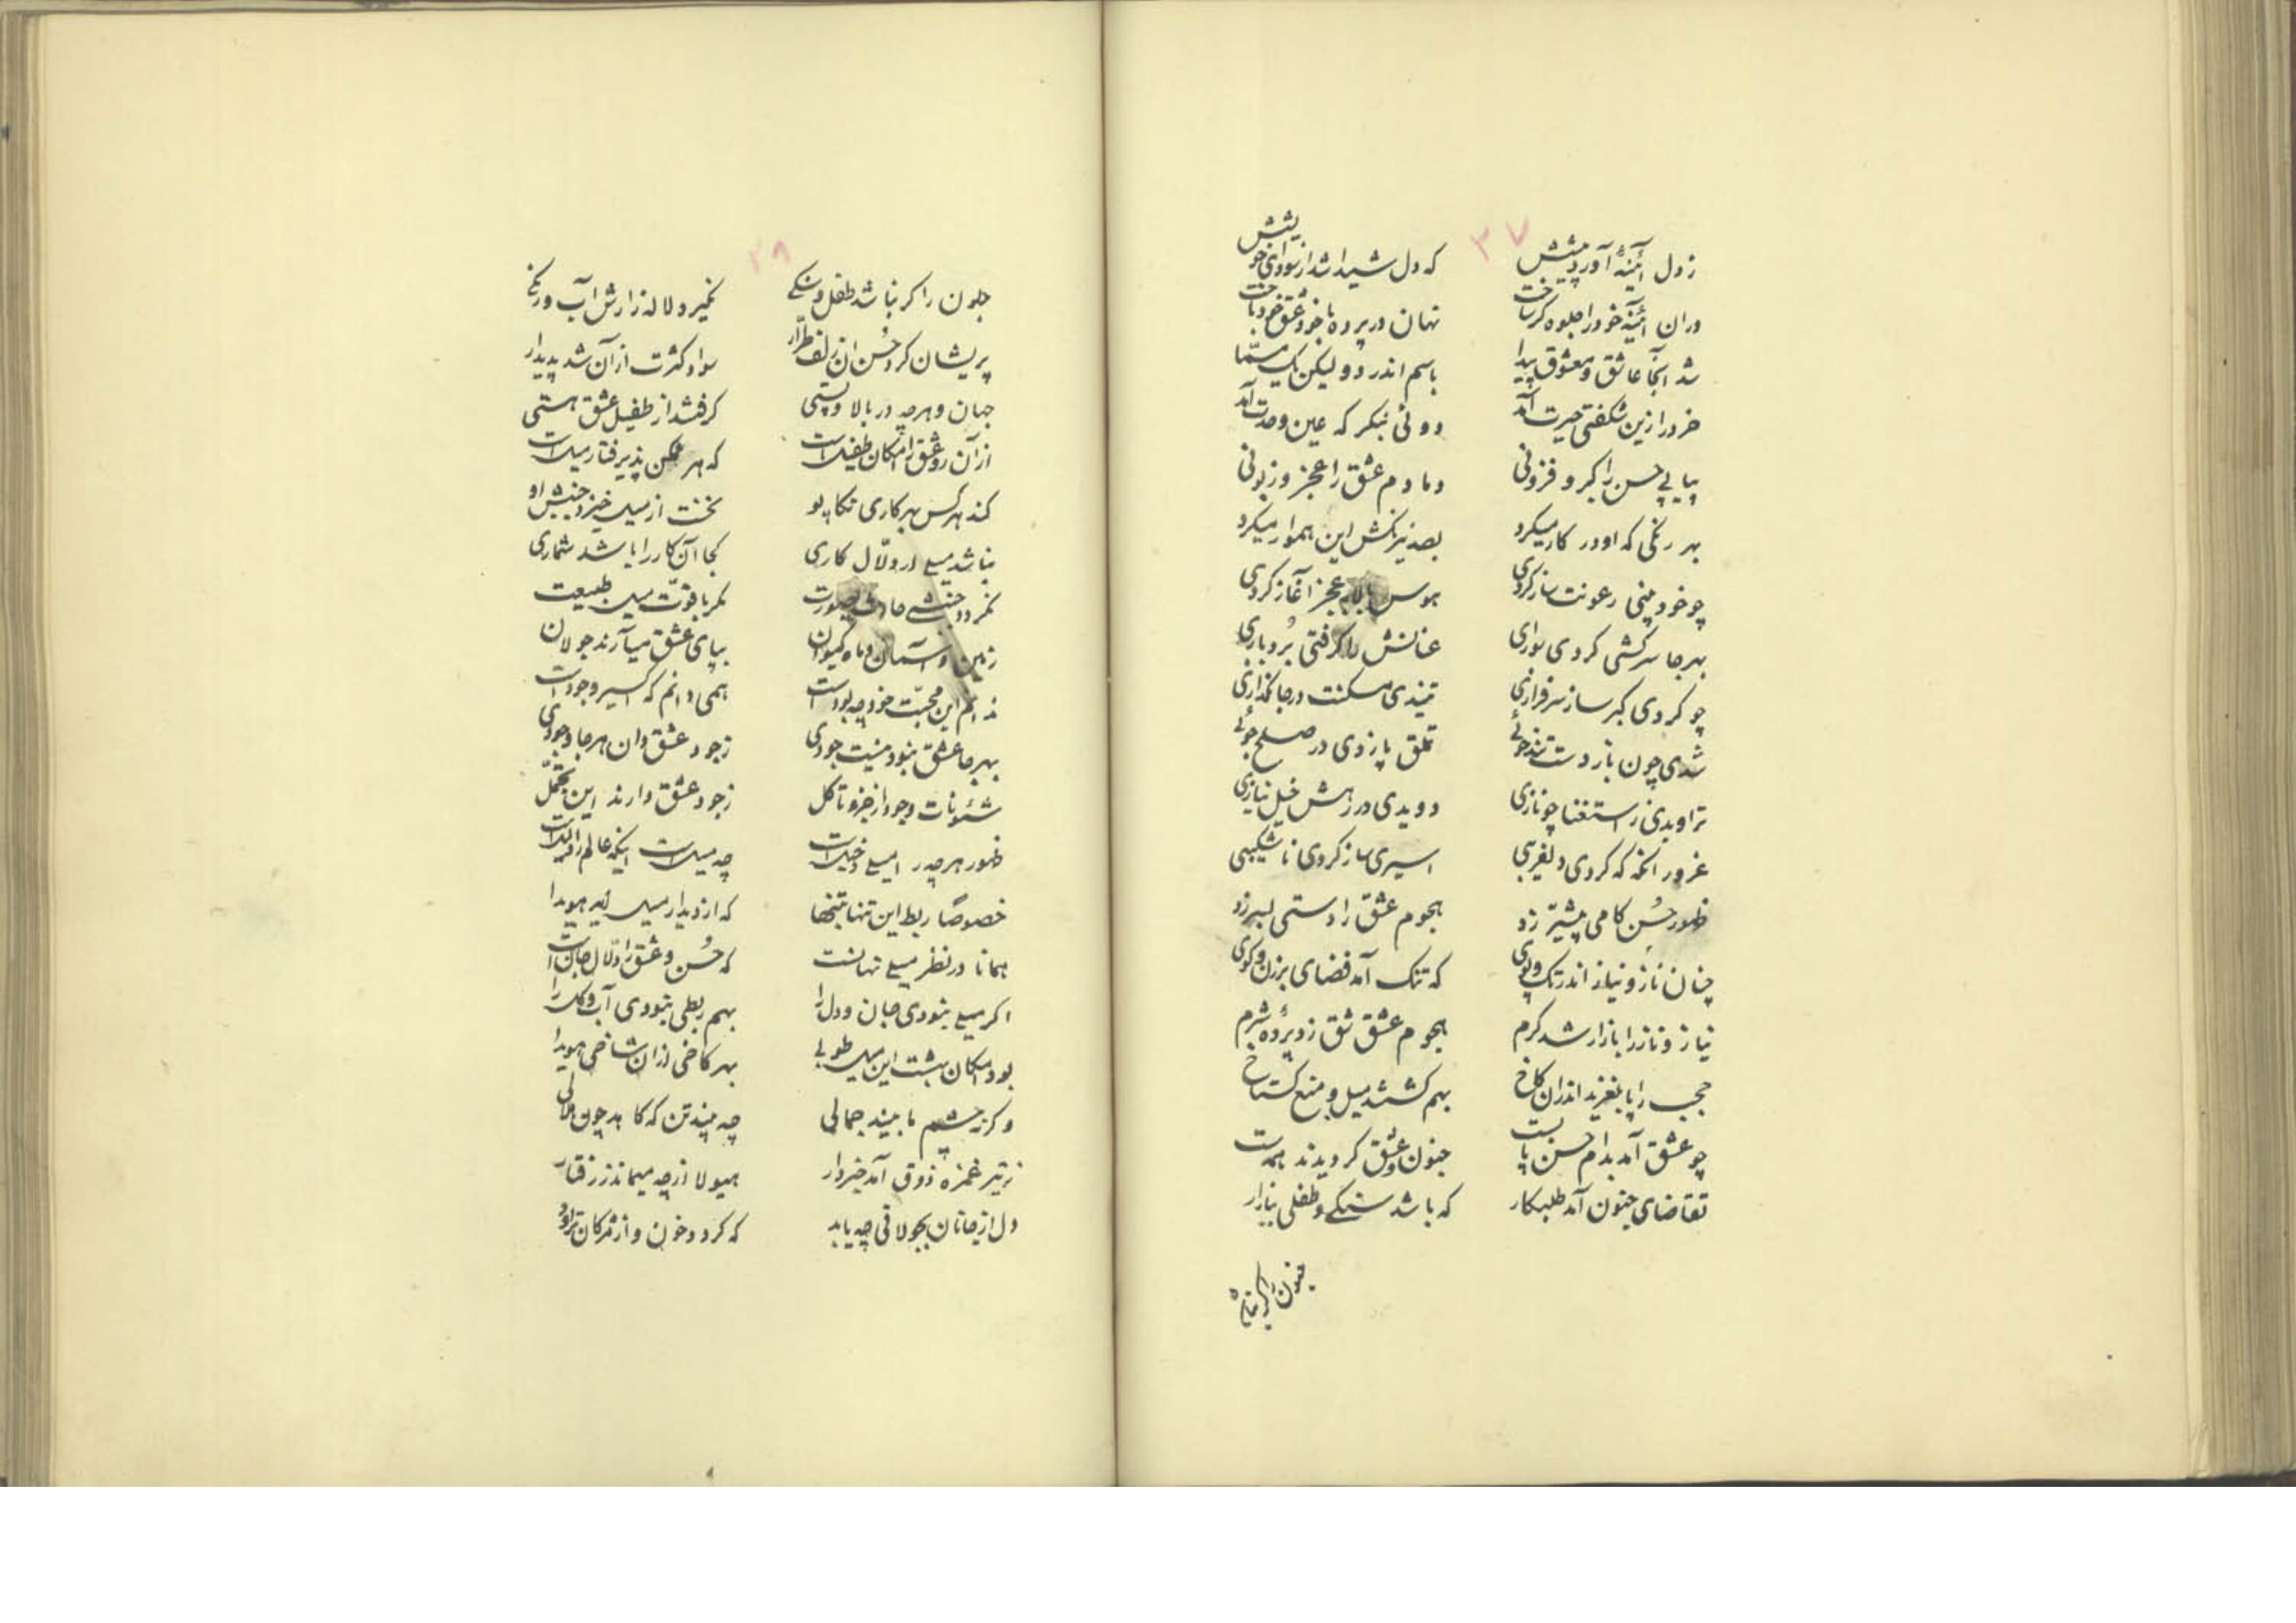 ۳۷
زدل آئینهٔ آورد پیشش که دل شیدا شد از سودای خویش
دران آئینه خود را جلوه گر ساخت نهان در پرده با خود عشق خود باخت
شد آنجا عاشق و معشوق پیدا باسم اندر دو لیکن یک مسمّا
خرد را زین شکفتی حیرت آمد دوئی بنکر که عین وحدت آمد
پیاپی حسن را کبر و فزونی دمادم عشق را عجز و زبونی
بهر رنکی که او در کار میکرد بصد نیرنکش این هموار میکرد
چو خودبینی رعونت ساز کردی هوس لابه عجز آغاز کردی
بهر جا سرکشی کردی سواری عنانش را کرفتی بردباری
چو کردی کبر ساز سرفرازی تیندی مسکنت در جانکدازی
شدی چون باز دست تندخوئی تملق پا زدی در صلح جوئی
تراویدی ز استغنا چو نازی دویدی در رهش خیل نیازی
غرور انکه که کردی دلفریبی اسیری ساز کردی ناشکیبی
ظهور حُسن کامی پیشتر زد هجوم عشق را دستی بسر زد
چنان ناز و نیاز اندر تک و پوی که تنک آمد فضای برزن و کوی
نیاز و ناز را بازار شد کرم هجوم عشق شق زد پردهٔ شرم
حجب را پا بلغزید اندران کاخ بهم کشتند میل و منع کستاخ
چو عشق آمد بدام حسن پا بست جنون و عشق کردیدند همدست
تقاضای جنون آمد طلبکار که باشد سنکی و طفلی ببازار
جنون را کر نباشد
۳۸
جنون را کر نباشد طفل و سنکی نکیرد لاله زارش آب و رنکی
پریشان کرد حُسن ان زلف طرّار سواد کثرت از آن شد پدیدار
جهان و هر چه در بالا و پستی کرفتند از طفیل عشق هستی
از آن رو عشق را امکان طفیل است که هر ممکن پذیرفتار میل است
کند هر کس بهر کاری تکاپو نخست از میل خیزد جنبش او
نباشد میل ار دلّال کاری کجا آن کار را باشد شماری
نکردد جنبشی حادث بصورت مکر با قوّت میل طبیعت
زمین و آسمان و ماه و کیوان بپای عشق میآرند جولان
ندانم این محبّت خود چه بوده است همی دانم که اکسیر وجود است
بهر جا عشق نبود نیست جودی ز جود عشق دان هر جا وجودی
شئونات وجود از جزو تا کل ز جود عشق دارند این تجمّل
ظهور هر چه را میلی دخیل است چه میل است اینکه عالم را دلیل است
خصوصاً ربط این تنها بتنها که از دیدار میل آید هویدا
همانا در نظر میلی نهانست که حُسن و عشق را دلّال جان است
اکر میلی نبودی جان و دل را بهم ربطی نبودی آب و کل را
بود امکان بهشت این میل طوبی بهر کاخی از آن شاخی هویدا
و کرنه چشم ما بیند جمالی چه بیند تن که کاهد چون هلالی
ز تیر غمزه ذوق آمد خبردار هیولا از چه میماند ز رفتار
دل از جانان بجولاقی چه یابد که کردد خون و از مژکان تراود